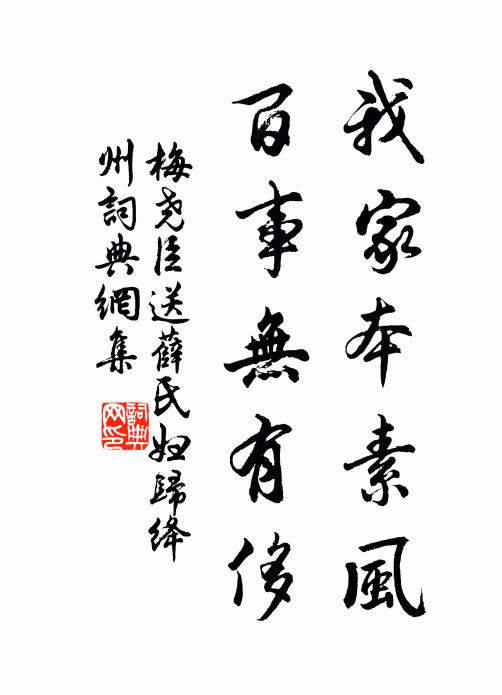 我家本素風
百事無有侈
梅堯臣送薛氏婦歸絳
州詞典網集
詞典网印